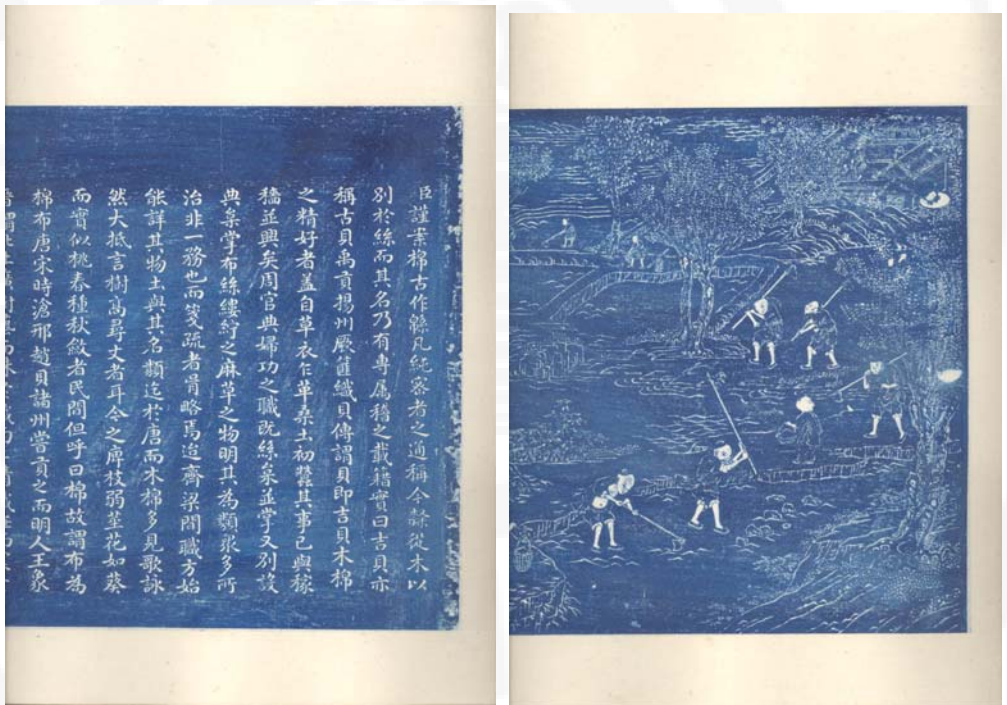 臣謹案棉古作緜凡純密者之通稱今隸從木以
別於絲而其名乃有專属稽之載籍實曰吉貝亦
稱古貝禹貢揚州厥篚織貝傳謂貝即吉貝木棉
之精好者蓋自草衣乍革桑土初蠶其事已與稼
穡並興矣周官典婦功之職既絲枲並掌又別設
典枲掌布絲縷紵之麻草之物明其為類衆多所
治非一務也而箋疏者胥略焉迨齊梁間職方始
能詳其物土與其名類迄於唐而木棉多見歌詠
然大抵言樹高尋丈者耳今之庳枝弱莖花如葵
而實似桃春種秋斂者民間但呼曰棉故謂布為
棉布唐宋時滄邢趙貝諸州嘗貢之而明人王象